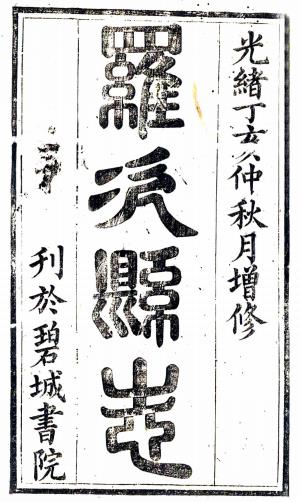 光緒丁亥仲秋月增修
羅次縣志
刋於碧城書院